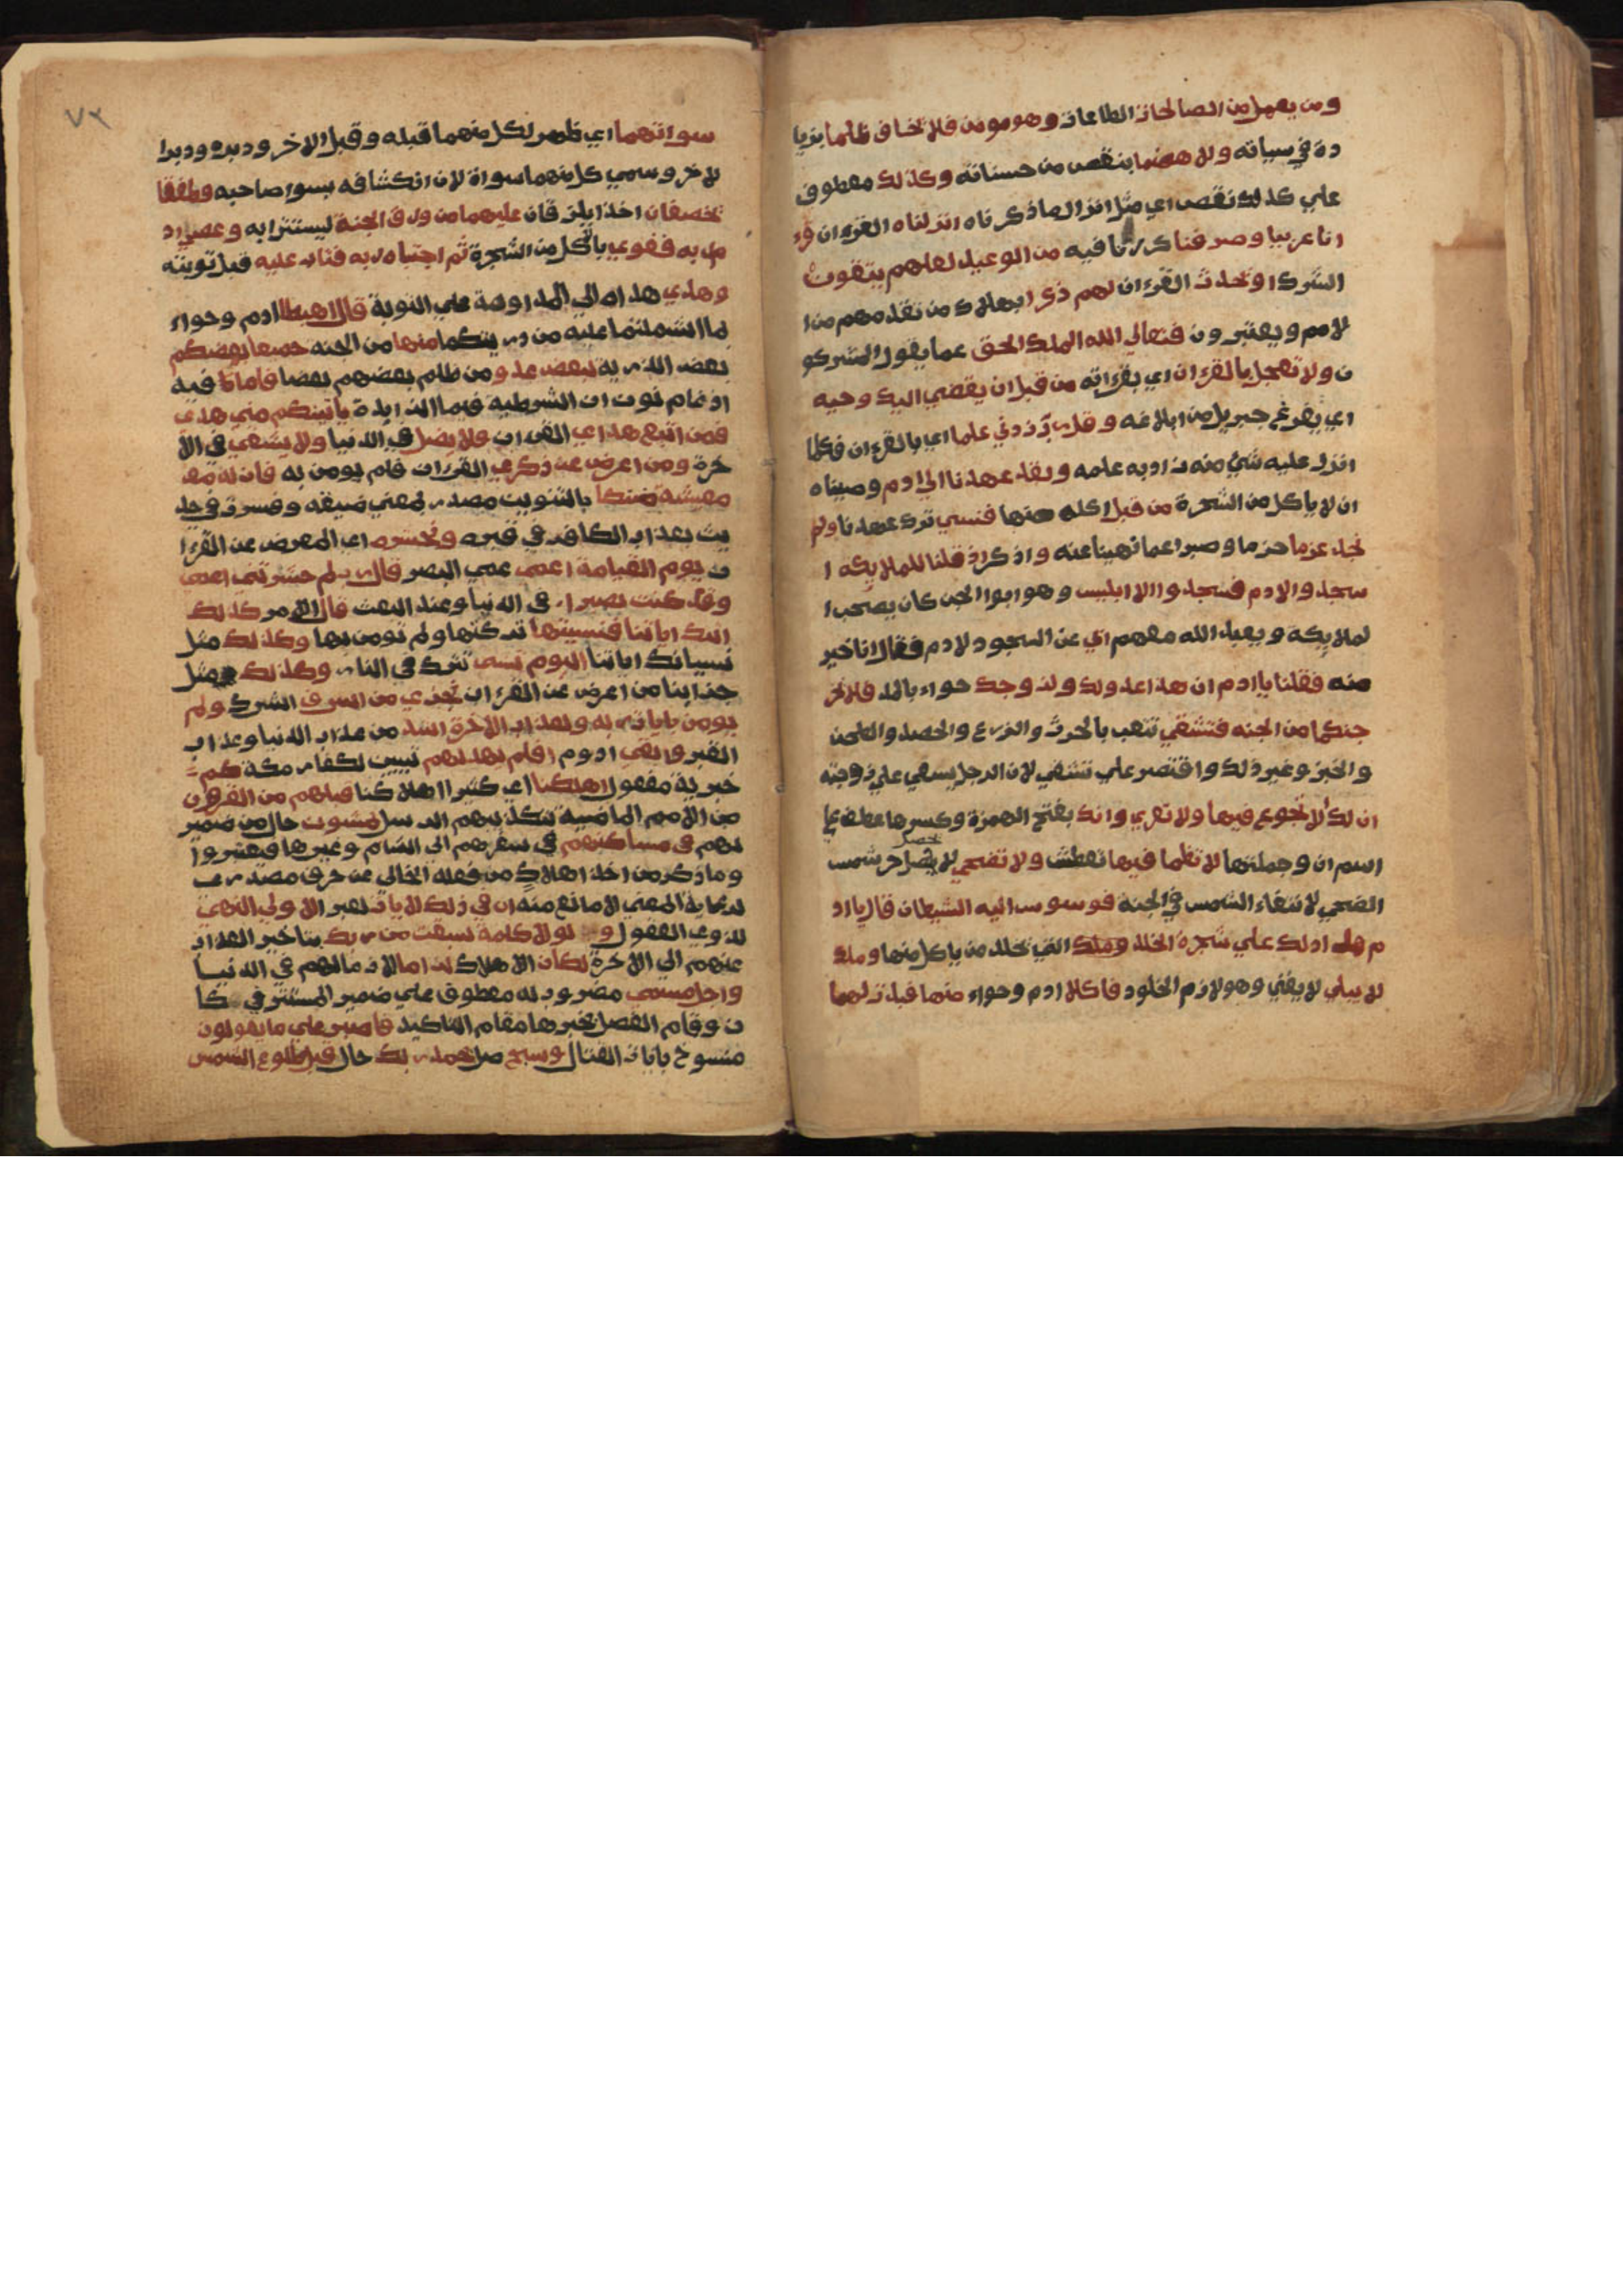 ومن يعمل من الصالحات الطاعات وهو مومن فلا تخاف ظلما بزيا
دة في سياته ولا هضما بنقص من حسناته وكذلك معطوف
علي كذلك نقص اي مثل انزال ما ذكرناه انزلناه القرءان قرء
انا عربيا وصرفنا كررنا فيه من الوعيد لعلهم يتقون
الشرك او تحدث القرءان لهم ذكرا بهلاك من تقدمهم من ا
لامم ويعتبرون فتعالي الله الملك الحق عما يقول المشركو
ن ولا تعجل بالقرءان اي بقراته من قبل ان يقضي اليك وحيه
اي يفرغ جبريل من ابلاغه وقل رب زدني علما اي بالقرءان فكلما
انزل عليه شيء منه زاد به علمه ولقد عهدنا الي ادم وصيناه
ان لا ياكل من الشجرة من قبل اكله منها فنسي ترك عهدنا ولم
نجد عزما حزما وصبرا عما نهيناه عنه واذكر اذ قلنا للملايكة ا
سجدوا لادم فسجدوا الا ابليس وهو ابوا الجن كان يصحب ا
لملايكة ويعبد الله معهم ابي عن السجود لادم فقال انا خير
منه فقلنا يا ادم ان هذا عدو لك ولزوجك حواء بالمد فلا يخر
جنكما من الجنه فتشقي تتعب بالحرث والزرع والحصد والطحن
والخبز وغير ذلك واقتصر علي تشقي لان الرجل يسعي علي زوجته
ان لك الا تجوع فيها ولا تعري وانك بفتح الهمزة وكسرها عطف علي
اسم ان وجملتها لا تظما فيها تعطش ولا تضحي لا يحصل حر شمس
الضحي لانتفاء الشمس في الجنة فوسوس اليه الشيطان قال يا اد
م هل ادلك علي شجرة الخلد وملك التي يخلد من ياكل منها وملك
لا يبلي لا يفني وهو لازم الخلود فاكلا ادم وحواء منها فبدت لهما
سواتهما اي ظهر لكل منهما قبله وقبل الاخر ودبره ودبرا
لاخر وسمي كل منهما سواة لان انكشافه يسوء صاحبه وطفقا
يخصفان اخذا يلزقان عليهما من ورق الجنة ليستترا به وعصي اد
م ربه فغوي بالاكل من الشجرة ثم اجتباه ربه فتاب عليه قبل توبته
وهدي هداه الي المداومة علي التوبة قال اهبطا ادم وحواء
بما اشتملتما عليه من ذريتكما منها من الجنه جميعا بعضكم
بعض الذرية لبعض عدو من ظلم بعضهم بعضا فاما فيه
ادغام نون ان الشرطية فيما الزايدة ياتينكم مني هدي
فمن اتبع هداي القرءان فلا يضل في الدنيا ولا يشقي في الا
خرة ومن اعرض عن ذكري القرءان فلم يومن به فان له مع
معيشة ضنكا بالتنوين مصدر بمعني ضيقه وفسرت في حد
يث بعذاب الكافر في قبره ونحشره اي المعرض عن القرءا
ن يوم القيامة اعمي عمي البصر قال رب لم حشرتني اعمي
وقد كنت بصيرا في الدنيا وعند البعث قال الامر كذلك
اتتك اياتنا فنسيتها تركتها ولم تومن بها وكذلك مثل
نسيانك اياتنا اليوم تنسي تترك في النار وكذلك مثل
جزاينا من اعرض عن القرءان نجزي من اسرف اشرك ولم
يومن بايات ربه ولعذاب الاخرة اشد من عذاب الدنيا وعذاب
القبر وابقي ادوم افلم يهد لهم تبيين لكفار مكة كم
خبرية مفعول اهلكنا اي كثيرا اهلاكنا قبلهم من القرون
من الامم الماضية بتكذيبهم الرسل يمشون حال من ضمير
لهم في مساكنهم في سفرهم الي الشام وغيرها فيعتبروا
وما ذكر من اخذ اهلاك من فعله الخالي عن حرف مصدري
لرعاية المعني لا مانع منه ان في ذلك لايات لعبر الاولي النهي
لذوي العقول ولولا كلمة سبقت من ربك بتاخير العذاب
عنهم الي الاخرة لكان الاهلاك لزاما لازما لهم في الدنيا
واجل مسمي مضروب له معطوف علي ضمير المستتر في كا
ن وقام الفصل بخبرها مقام التاكيد فاصبر علي ما يقولون
منسوخ بايات القتال وسبح صل بحمد ربك حال قبل طلوع الشمس